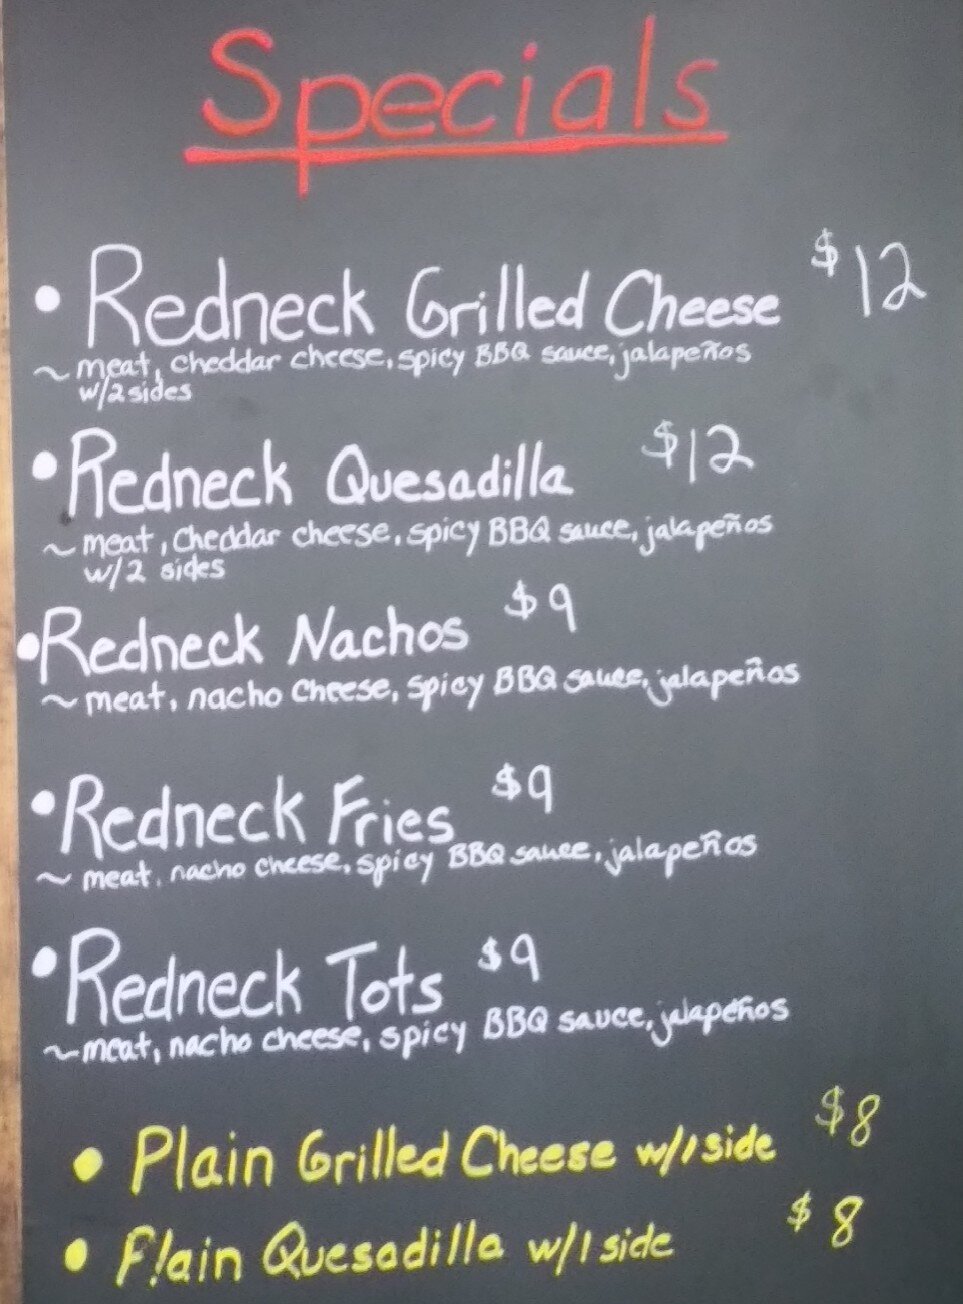 Specials
• Redneck Grilled Cheese $12
~ meat, cheddar cheese, spicy BBQ sauce, jalapeños
w/2 sides
• Redneck Quesadilla $12
~ meat, cheddar cheese, spicy BBQ sauce, jalapeños
w/2 sides
• Redneck Nachos $9
~ meat, nacho cheese, spicy BBQ sauce, jalapeños
• Redneck Fries $9
~ meat, nacho cheese, spicy BBQ sauce, jalapeños
• Redneck Tots $9
~ meat, nacho cheese, spicy BBQ sauce, jalapeños
• Plain Grilled Cheese w/1 side $8
• Plain Quesadilla w/1 side $8